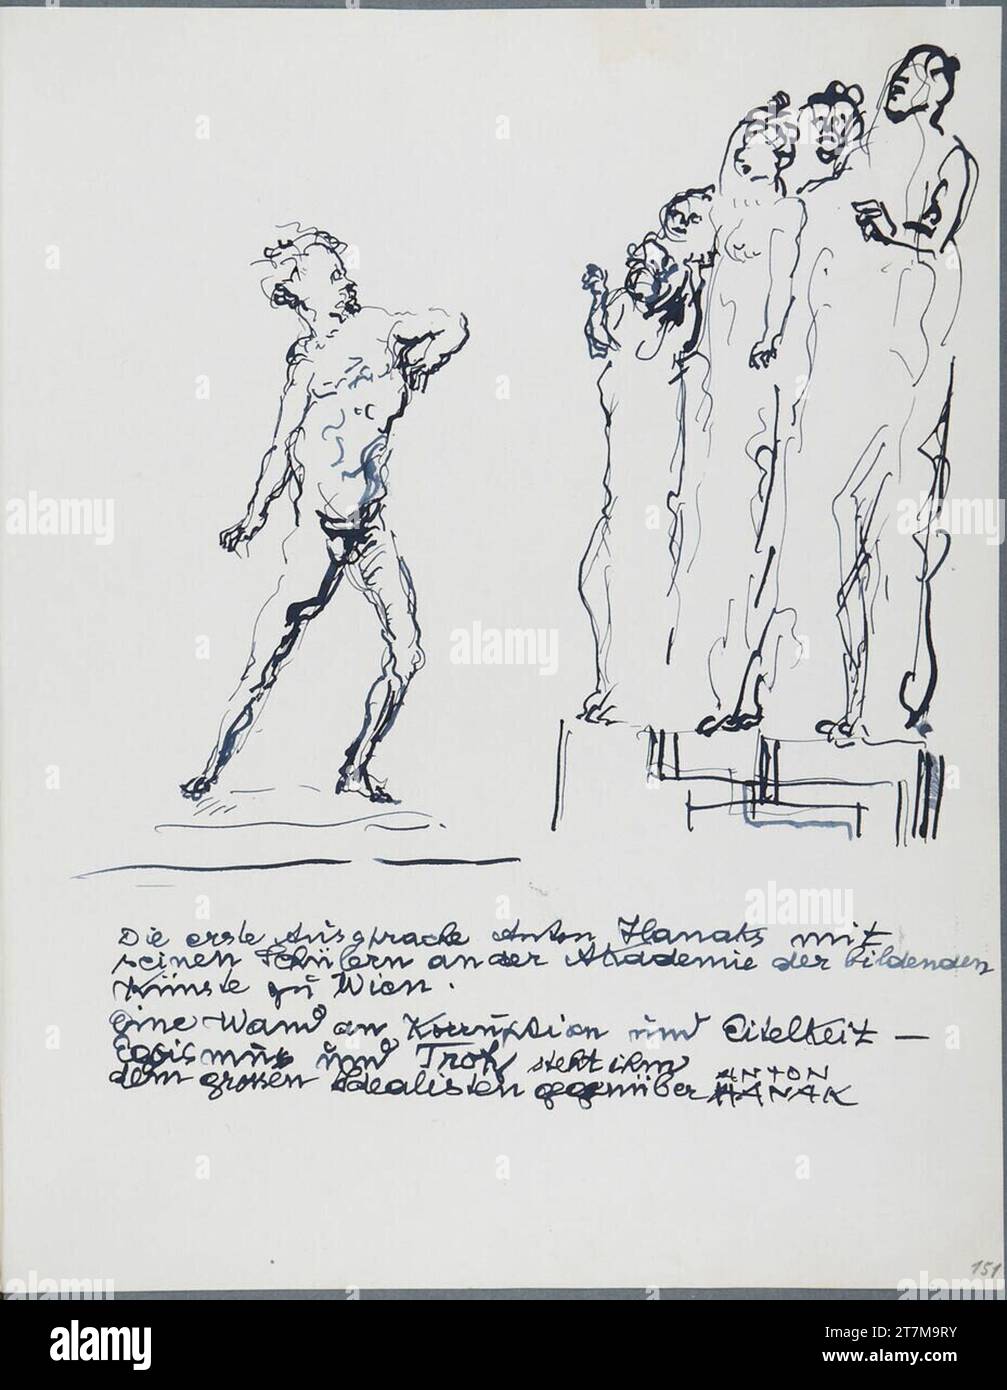 Die erste Aussprache Anton Hanaks mit
seinen Schülern an der Akademie der bildenden
Künste zu Wien.
Eine Wand an Korruption und Eitelkeit —
Egoismus und Trotz steht ihm
dem grossen Idealisten gegenüber ANTON
HANAK
151
alamy
Image ID: 2T7M9RY
www.alamy.com